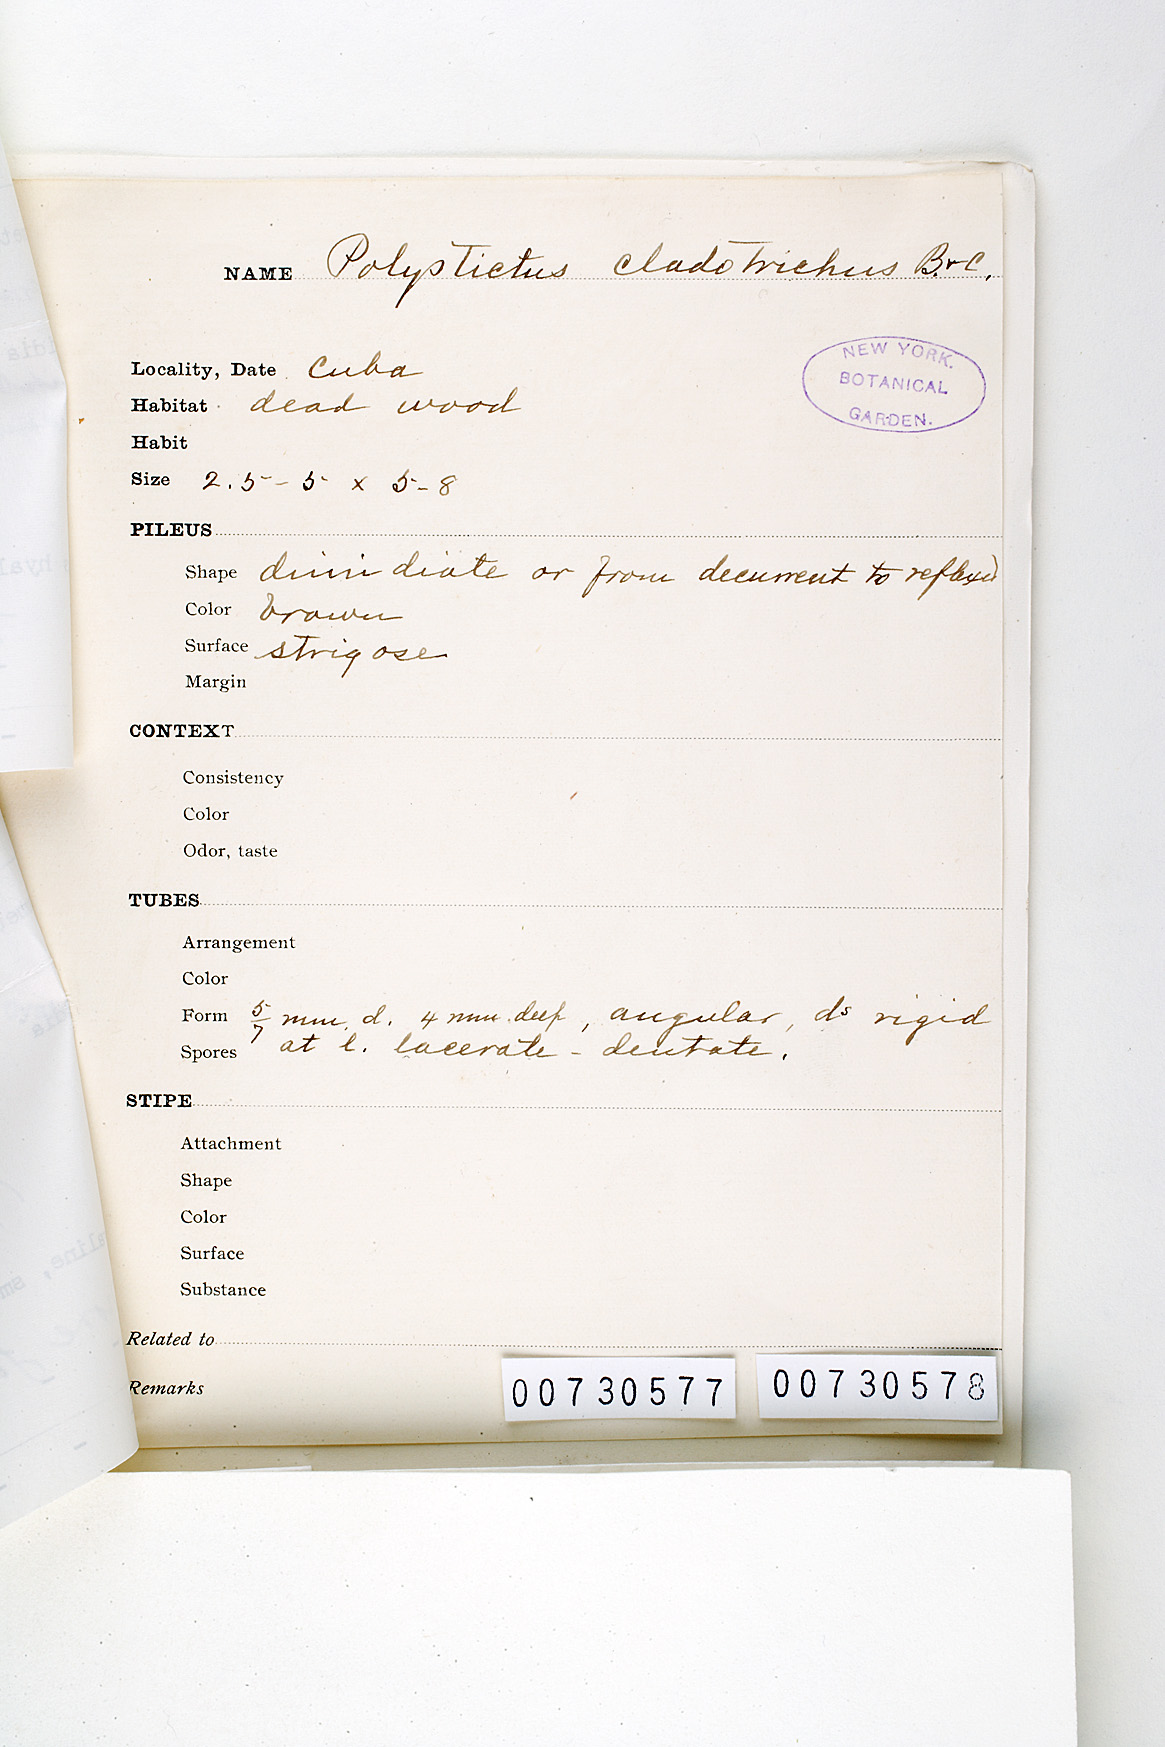 NAME Polystictus cladotrichus B. & C.
NEW YORK
BOTANICAL
GARDEN.
Locality, Date Cuba
Habitat dead wood
Habit
Size 2.5 - 5 x 5 - 8
PILEUS
Shape dimidiate or from decurrent to reflexed
Color brown
Surface strigose
Margin
CONTEXT
Consistency
Color
Odor, taste
TUBES
Arrangement
Color
Form 5/7 mm. d. 4 mm. deep, angular, ds rigid
at l. lacerate - dentate.
Spores
STIPE
Attachment
Shape
Color
Surface
Substance
Related to
Remarks
00730577
00730578